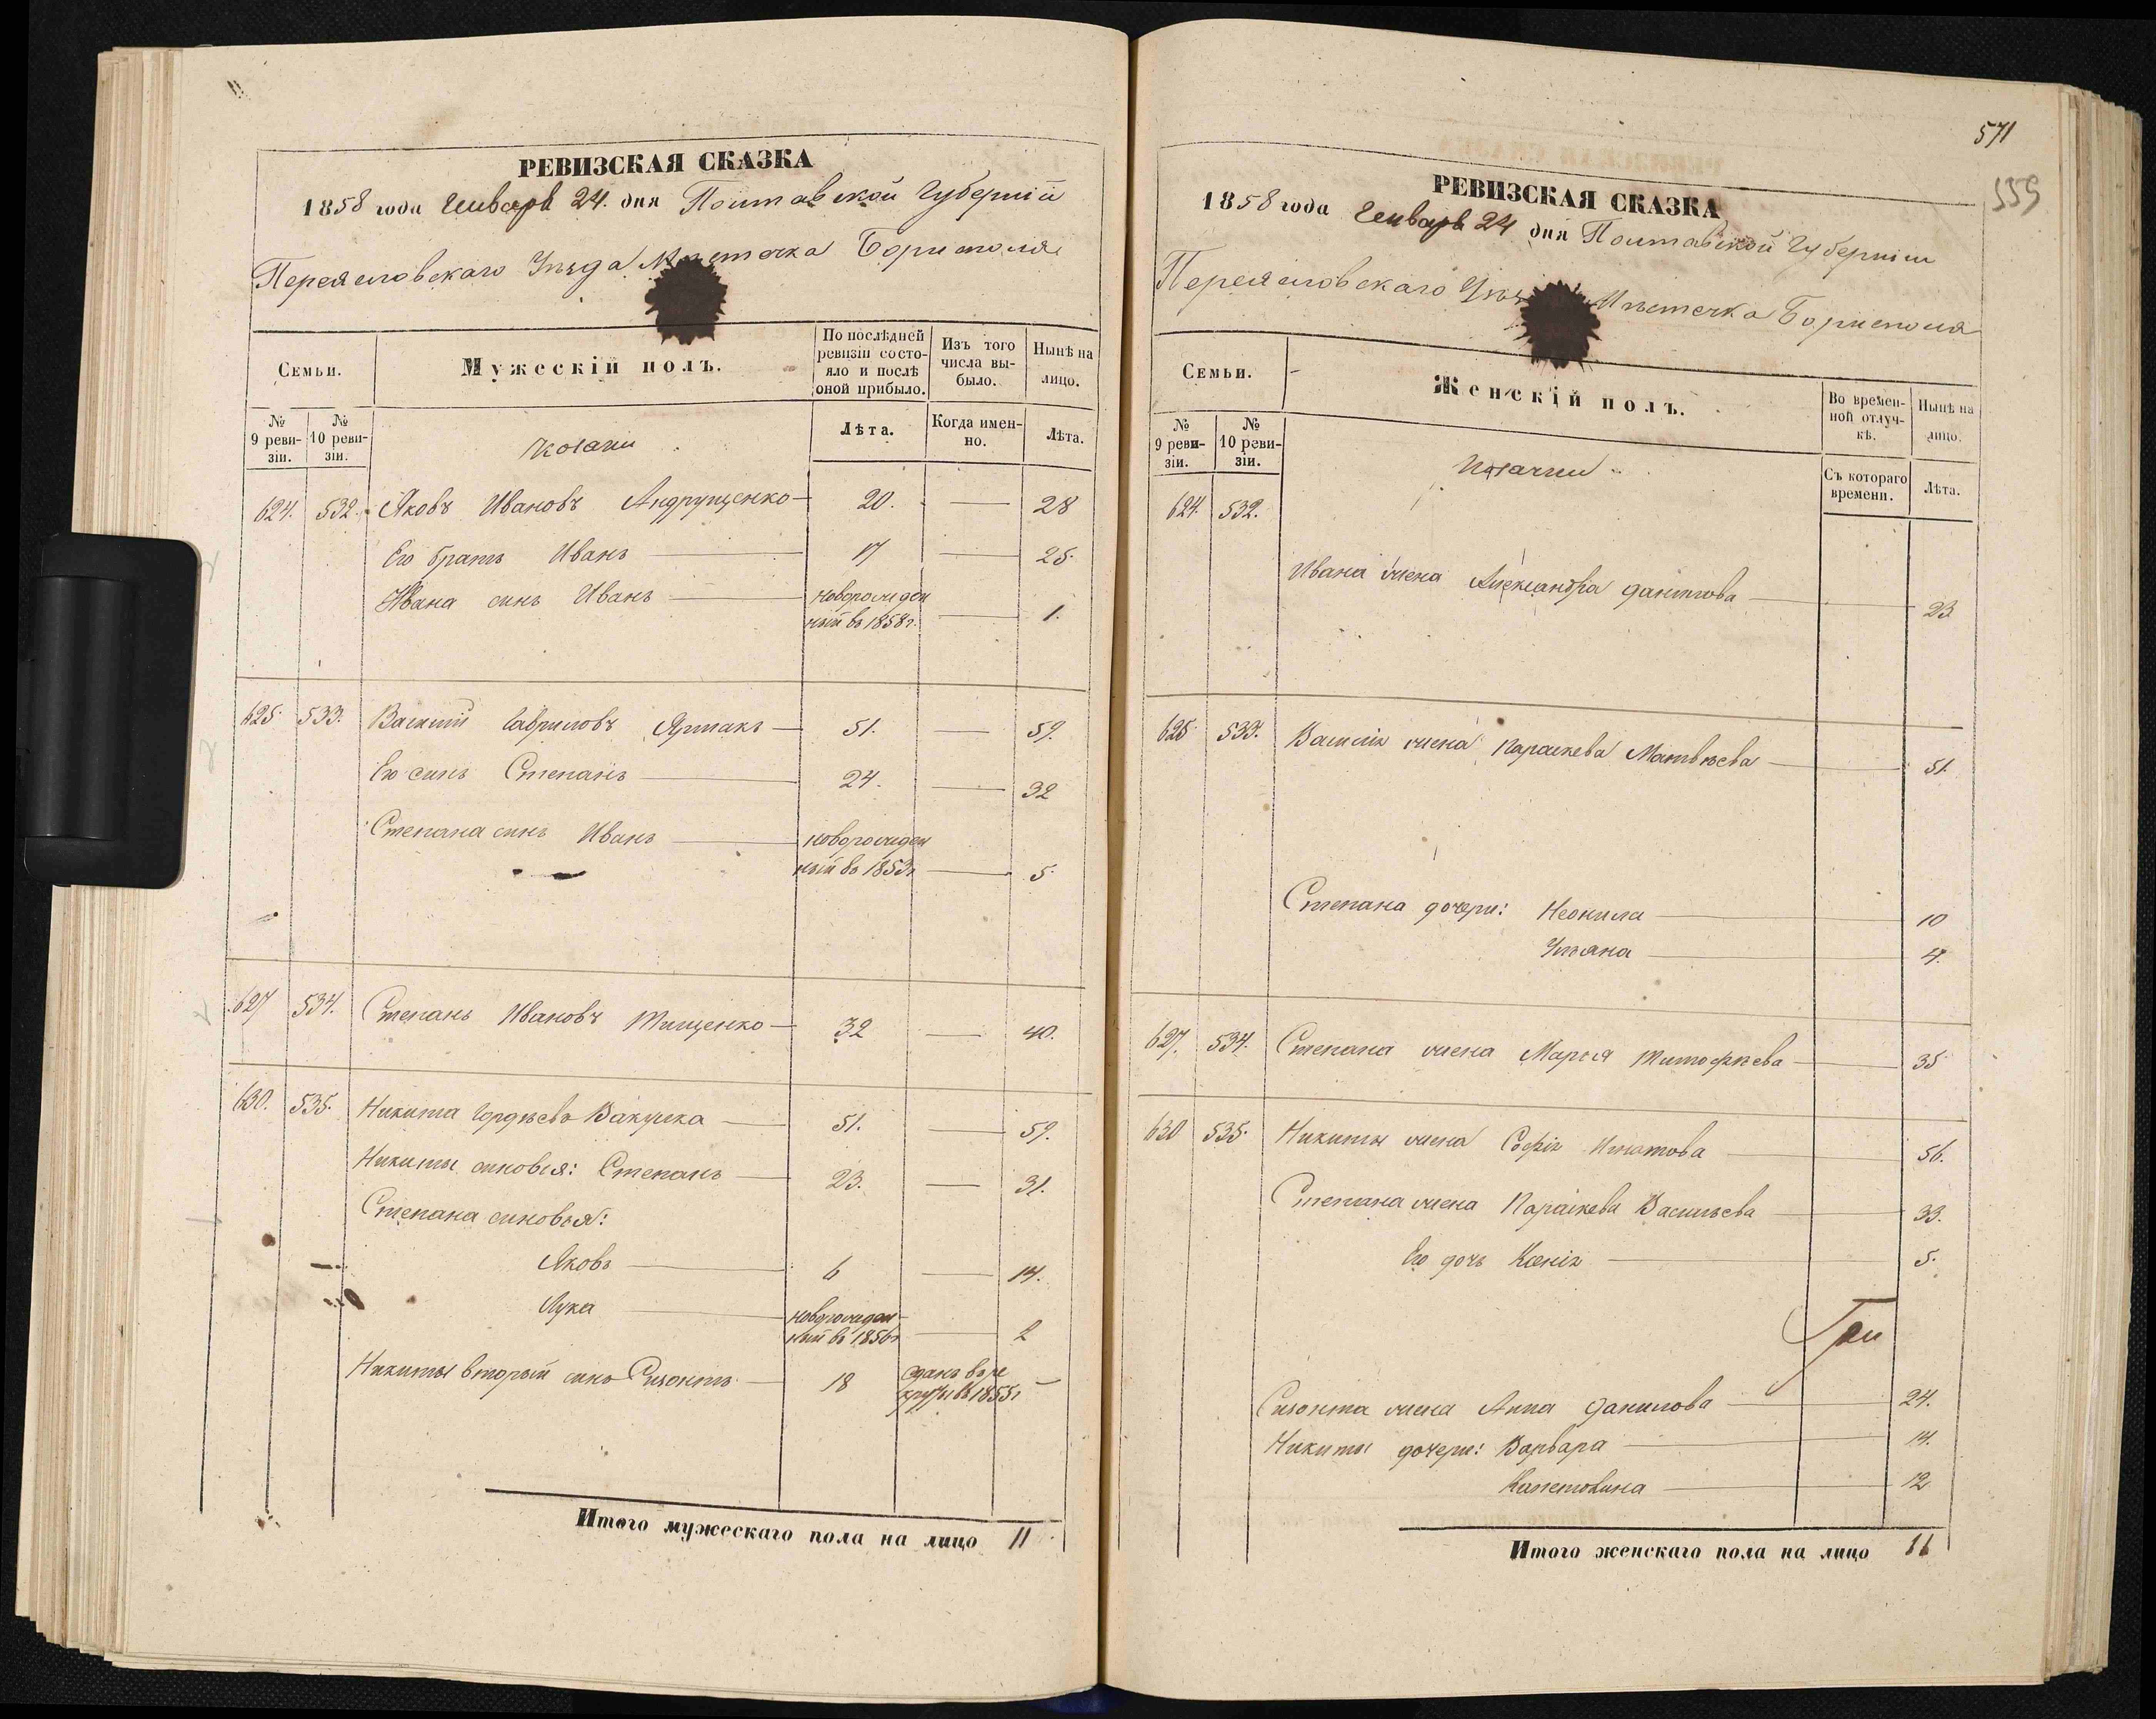 РЕВИЗСКАЯ СКАЗКА
1858 года Генваря 24. дня Полтавской Губерніи
Переяславского Уѣзда Мѣстечка Борисполя
Семьи.
Мужескій полъ.
По послѣдней ревизіи состояло и послѣ оной прибыло.
Изъ того числа выбыло.
Нынѣ на лицо.
№ 9 ревизіи.
№ 10 ревизіи.
Козаки
Лѣта.
Когда именно.
Лѣта.
624. 532. Яковъ Ивановъ Андрущенко 20. — 28
Его братъ Иванъ 17 — 25.
Ивана синъ Иванъ новорожден
ный въ 1858г. — 1.
625. 533. Василій Гавриловъ Ярмакъ 51. — 59.
Его синъ Степанъ 24. — 32
Степана синъ Иванъ новорожден
ный въ 1853г — 5.
627 534. Степанъ Ивановъ Тищенко 32 — 40.
630. 535. Никита Гордѣевъ Вакулка 51. — 59.
Никиты синовья: Степанъ 23. — 31.
Степана синовья:
Яковъ 6 — 14.
Лука новорожден-
ный въ 1856г — 2
Никиты вторый синъ Сизонтъ 18 сданъ въ ре
круты въ 1855г —
Итого мужескаго пола на лицо 11
571
559
РЕВИЗСКАЯ СКАЗКА
1858 года Генваря 24 дня Полтавской Губерніи
Переяславского Мѣстечка Борисполя
Семьи.
Женскій полъ.
Во временной отлучкѣ.
Нынѣ на лицо.
№ 9 ревизіи.
№ 10 ревизіи.
Козачки
Съ котораго времени.
Лѣта.
624. 532.
Ивана жена Александра Данилова 23
625 533. Василія жена Параскева Матвѣева 51.
Степана дочери: Неонила 10
Уляна 4.
627. 534. Степана жена Марья Тимофѣева 35
630 535. Никиты жена Софія Игнатова 56.
Степана жена Параскева Васильева 33.
Его дочь Ксенія 5.
Сизонта жена Анна Данилова 24.
Никиты дочери: Варвара 14.
Капетолина 12
Итого женскаго пола на лицо 11